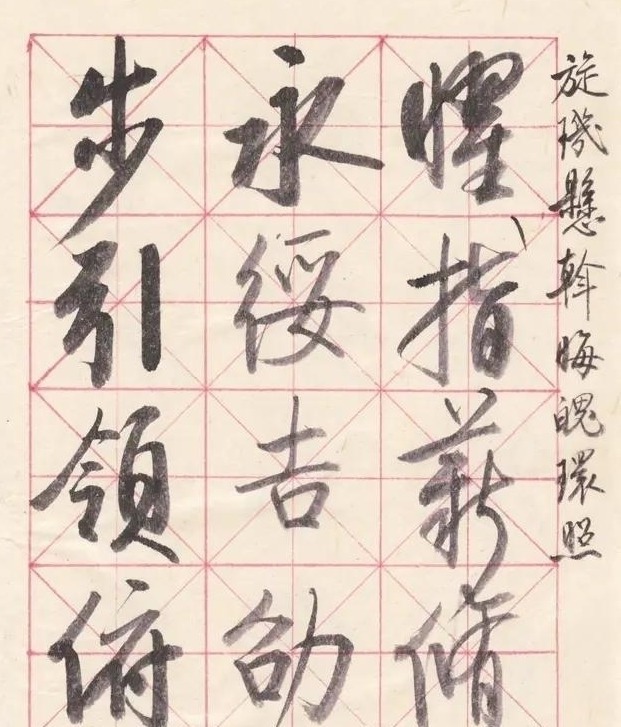 旋璣懸斡晦魄環照
指薪脩
永綏吉劭
步引領俯